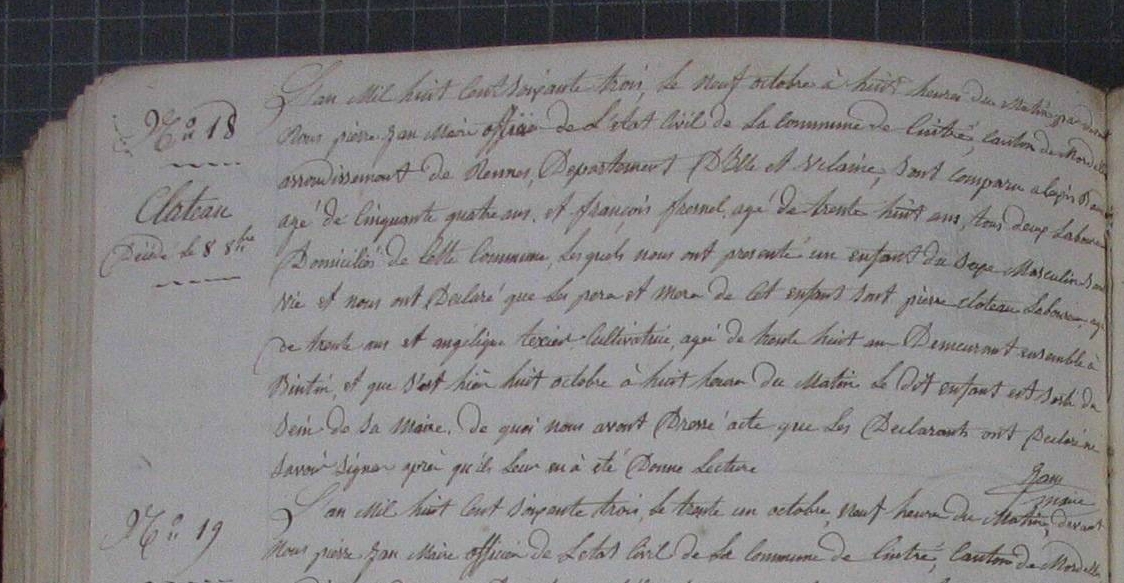 N° 18
Cloteau
Décédé le 8 8bre
L'an Mil huit Cent Soixante trois, le neuf octobre à huit heures du Matin par devant
Nous pierre Jan Maire officier de L'etat Civil de la Commune de Cintré, Canton de Mordelle
arrondissement de Rennes, Departement D'Ille et Vilaine, Sont Comparu alexis
agé de Cinquante quatre ans, et françois fresnel, agé de trente huit ans, tous deux Laboureur
Domiciliés de Cette Commune, Lesquels nous ont presenté un enfant du Sexe Masculin Sans
vie et nous ont Declaré que Les pere et mere de Cet enfant Sont pierre Cloteau Laboureur, agé
de trente ans et angélique texier Cultivatrice, agée de trente huit an Demeurant ensemble à
Bintin, et que S'est hier huit octobre à huit heure du Matin Le dit enfant est Sorti du
Sein de Sa Maire. de quoi nous avont Dressé acte que Les Declarants ont Declaré ne
Savoir Signer après qu'ils Leur en à été Donne Lecture
Jan
maire
N° 19
L'an Mil huit Cent Soixante trois, Le trente un octobre, neuf heure du Matin, devant
Nous pierre Jan Maire officier de Letat Civil de La Commune de Cintré, Canton de Mordelle